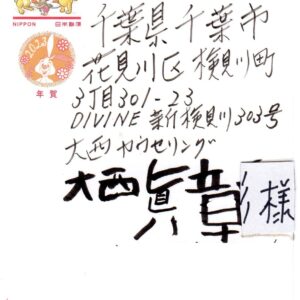 NIPPON
日本郵便
2023
年賀
千葉県千葉市
花見川区検見川町
3丁目301-23
DIVINE新検見川303号
大西カウセリング
大西眞章
様